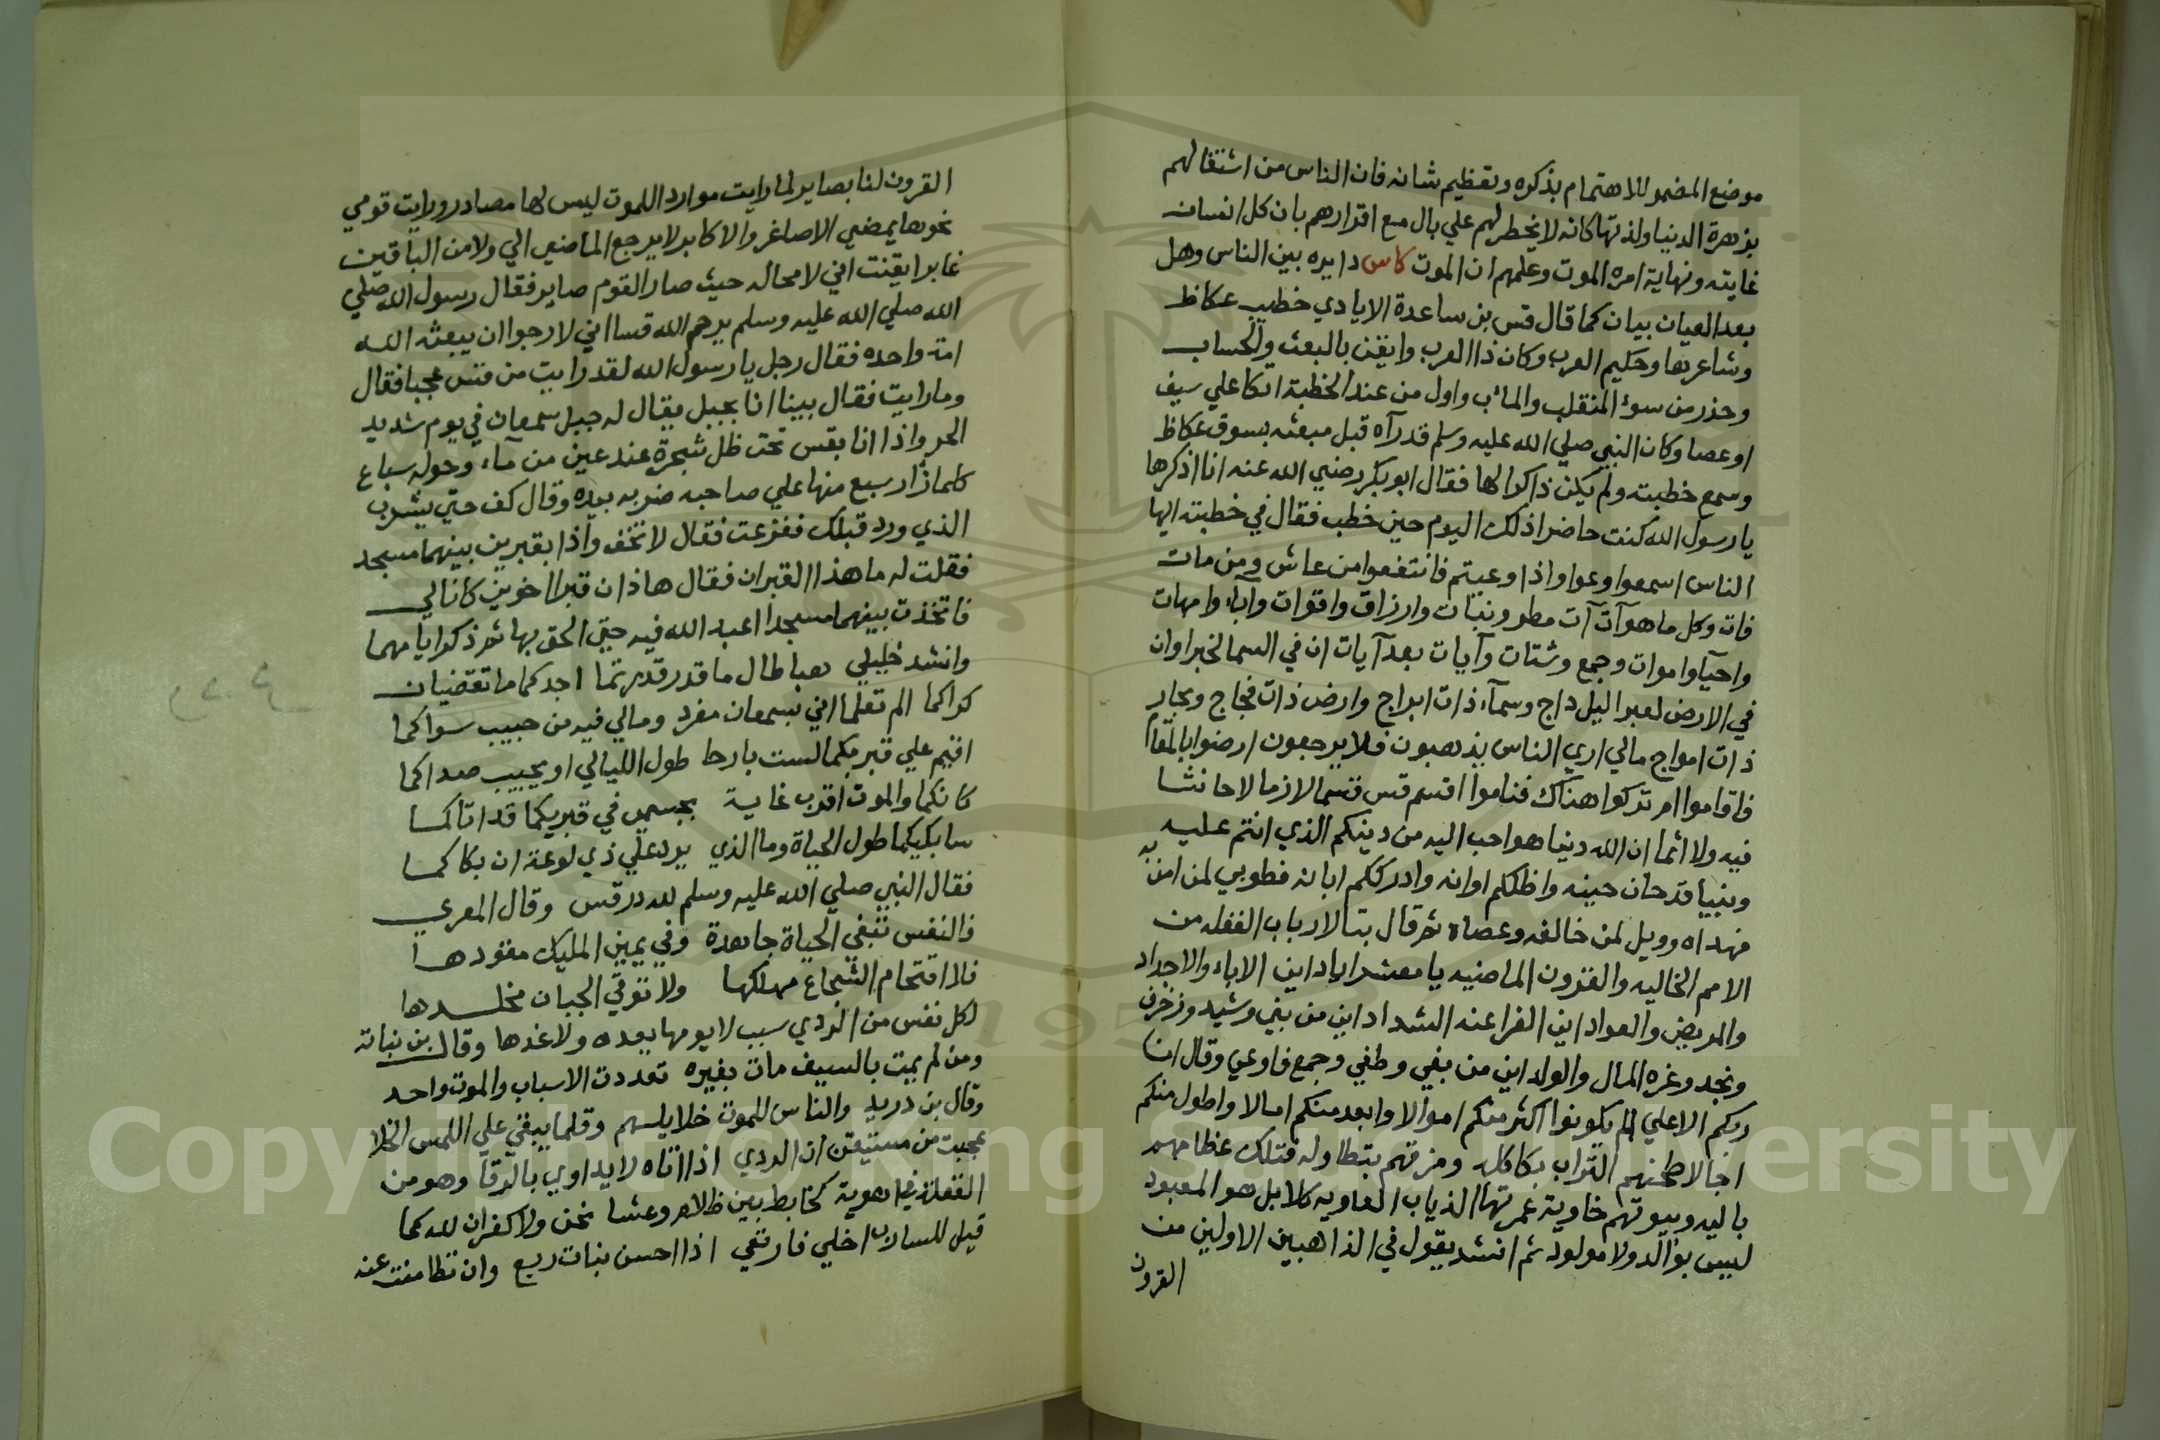 موضع المضمر للاهتمام بذكره وتعظيم شانه فان الناس من اشتغالهم
بزهرة الدنيا ولذتها كانه لا يخطر لهم علي بال مع اقرارهم بان كل انسان
غايته ونهاية امره الموت وعلمهم ان الموت كاس دايره بين الناس وهل
بعد العيان بيان كما قال قس بن ساعدة الايادي خطيب عكاظ
وشاعرها وحكيم العرب وكان ذا العرب وايقن بالبعث والحساب
وحذر من سوء المنقلب والمآب واول من عند الخطبة اتكا علي سيف
او عصا وكان النبي صلي الله عليه وسلم قد رآه قبل مبعثه بسوق عكاظ
وسمع خطبته ولم يكن ذاكرا لها فقال ابو بكر رضي الله عنه انا اذكرها
يا رسول الله كنت حاضرا ذلك اليوم حين خطب فقال في خطبته ايها
الناس اسمعوا وعوا واذا وعيتم فانتفعوا من عاش ومن مات
فات وكل ما هو آت آت مطر ونبات وارزاق واقوات وآباء وامهات
واحيآ واموات وجمع وشتات وآيات بعد آيات ان في السما لخبرا وان
في الارض لعبرا ليل داج وسمآء ذات ابراج وارض ذات فجاج وبحار
ذات امواج مالي اري الناس يذهبون فلا يرجعون ارضوا بالمقام
فاقاموا ام تركوا هناك فناموا اقسم قس قسما لازما لا حانثا
فيه ولا اثما ان لله دينا هو احب اليه من دينكم الذي انتم عليه
ونبيا قد حان حينه واظلكم اوانه وادرككم ابانه فطوبي لمن امن به
فهداه وويل لمن خالفه وعصاه ثم قال تبا لارباب الغفله من
الامم الخاليه والقرون الماضيه يا معشر اياد اين الاباء والاجداد
والمريض والعواد اين الفراعنه الشداد اين من بني وشيد وزخرف
ونجد وغره المال والولد اين من بغي وطغي وجمع فاوعي وقال انا
ربكم الاعلي الم يكونوا اكثر منكم اموالا وابعد منكم امالا واطول منكم
اجالا طحنهم التراب بكلكله ومزقهم بتطاوله فتلك عظامهم
باليه وبيوتهم خاوية عمرتها الذياب العاويه كلا بل هو المعبود
ليس بوالد ولا مولود ثم انشد يقول في الذاهبين الاولين من
القرون
القرون لنا بصاير لما رايت موارد اللموت ليس لها مصادر ورايت قومي
نحوها يمضي الاصاغر والاكابر لا يرجع الماضي الي ولا من الباقين
غابر ايقنت اني لا محاله حيث صار القوم صاير فقال رسول الله صلي
الله صلي الله عليه وسلم يرحم الله قسا اني لارجوا ان يبعثه الله
امة واحده فقال رجل يا رسول الله لقد رايت من قس عجبا فقال
وما رايت فقال بينا انا بجبل يقال له جبل سمعان في يوم شديد
الحر واذا انا بقس تحت ظل شجرة عند عين من مآء وحوله سباع
كلما زأر سبع منها علي صاحبه ضربه بيده وقال كف حتي يشرب
الذي ورد قبلك ففزعت فقال لا تخف واذا بقبرين بينهما مسجد
فقلت له ما هذا القبران فقال هاذان قبرا اخوين كانا لي
فاتخذت بينهما مسجدا اعبد الله فيه حتي الحق بها ثم ذكر ايامهما
وانشد خليلي هبا طال ما قد رقدتما اجدكما ما تقضيان
كراكما الم تعلما اني بسمعان مفرد ومالي فيه من حبيب سواكما
اقيم علي قبريكما لست بارحا طول الليالي او يجيب صداكما
كانكما والموت اقرب غاية بجسمي في قبريكما قد اتاكما
سابكيكما طول الحياة وما الذي يرد علي ذي لوعة ان بكاكما
فقال النبي صلي الله عليه وسلم لله در قس وقال المعري
فالنفس تبغي الحياة جاهدة وفي يمين المليك مقودها
فلا اقتحام الشجاع مهلكها ولا توقي الجبان مخلدها
لكل نفس من الردي سبب لا يومها بعده ولا غدها وقال بن نباته
ومن لم يمت بالسيف مات بغيره تعددت الاسباب والموت واحد
وقال بن دريد والناس للموت خلا يلسهم وقلما يبقي علي اللمس الخلا
عجبت من مستيقن ان الردي اذا اتاه لا يداوي بالرقا وهو من
الغفلة في اهوية كخابط بين ظلام وعشا نحن ولا كفران لله كما
قيل للسارب اخلي فارتعي اذا احسن بنات ريع وان تطامنت عنه
Copyright © King Saud University
195